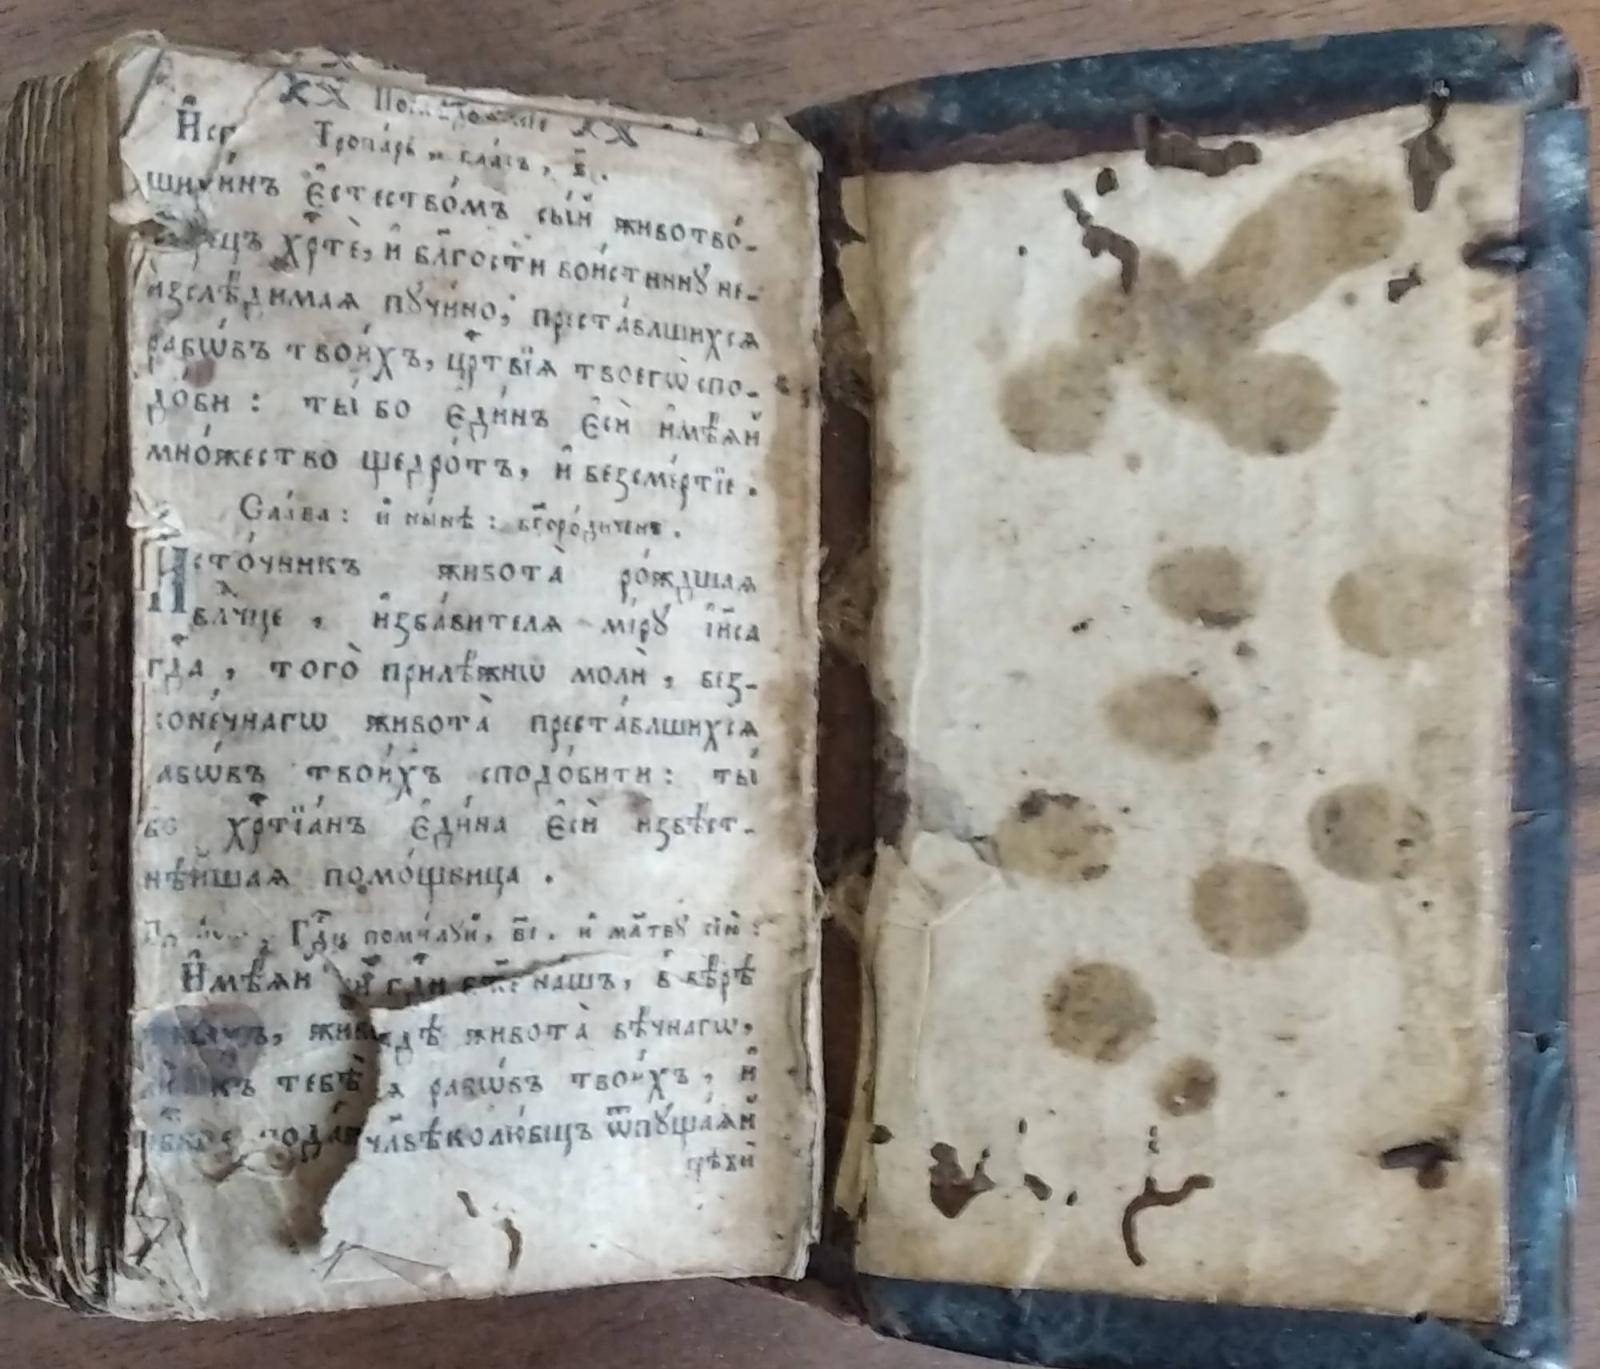 Тропа́рь, гла́съ, в҃.
є҆стество́мъ сы́й животво́-
хр҇тѐ, и҆ бл҃гости вои́стиннꙋ не-
и҆зслѣ́димая пꙋчи́но, преста́влшихся
рабѡ́въ твои́хъ, цр҇твїя твоегѡ̀ спо-
до́би : ты́ бо є҆ди́нъ є҆сѝ и҆мѣ́яй
мно́жество щедро́тъ, и҆ безсме́ртїе .
Сла́ва : и҆ ны́нѣ : бг҃оро́диченъ .
И҆сто́чникъ живота̀ ро́ждшая
влⷣчце , и҆зба́вителя мі́рꙋ і҆и҃са
гдⷭ҇а , того̀ прилѣ́жнѡ молѝ , без-
коне́чнагѡ живота̀ преста́влшихся
рабѡ́въ твои́хъ сподо́бити : ты́
бо хр҇тїа́нъ є҆ди́на є҆сѝ и҆звѣ́ст-
нѣ́йшая помо́щница .
Гдⷭ҇и поми́лꙋй, в҃і. и҆ мл҃твꙋ сїю̀ :
И҆мѣ́яй гдⷭ҇и бж҃е на́шъ, в вѣ́рѣ
живота̀ вѣ́чнагѡ,
къ тебѣ̀ рабѡ́въ твои́хъ , и҆
чл҃вѣколю́бецъ ѿпꙋща́яй
грѣхѝ